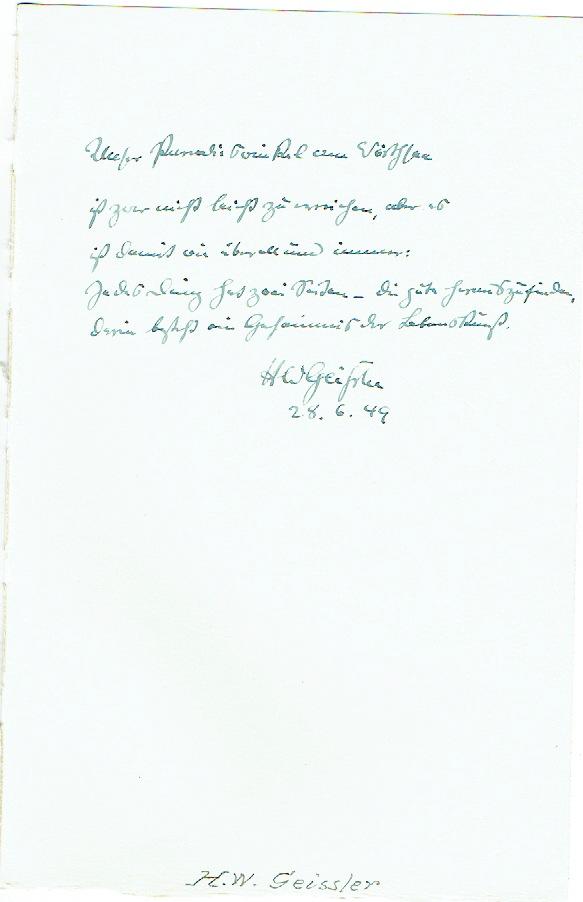 Unser Paradieswinkel am Wörthsee
ist zwar nicht leicht zu erreichen, aber es
ist damit wie überall und immer:
Jedes Ding hat zwei Seiten – die gute herauszufinden,
darin besteht ein Geheimnis der Lebenskunst.
HWGeißler
28. 6. 49
H.W. Geissler